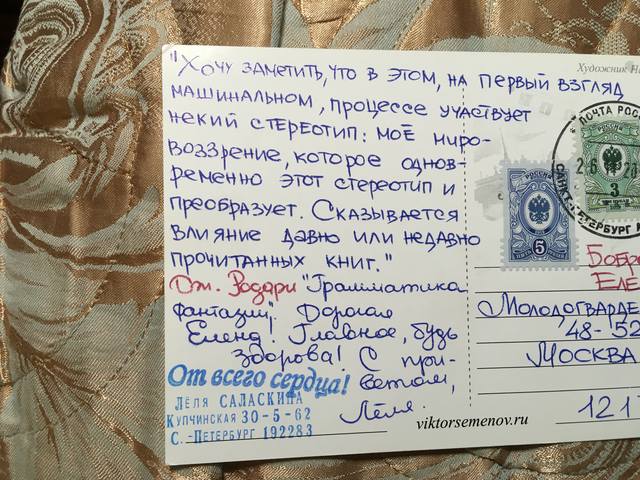 "Хочу заметить, что в этом, на первый взгляд
машинальном, процессе участвует
некий стереотип: моё миро-
воззрение, которое однов-
ременно этот стереотип и
преобразует. Сказывается
влияние давно или недавно
прочитанных книг."
Дж. Родари "Грамматика
фантазии". Дорогая
Елена! Главное, будь
здорова! С при-
ветом,
Лёля.
От всего сердца!
ЛЁЛЯ САЛАСКИНА
КУПЧИНСКАЯ 30-5-62
С.-ПЕТЕРБУРГ 192283
viktorsemenov.ru
Художник
ПОЧТА РОСС
САНКТ-ПЕТЕРБУРГ
РОССИЯ
3
РОССИЯ
5
Еле
Молодогварде
48-52
Москва
121